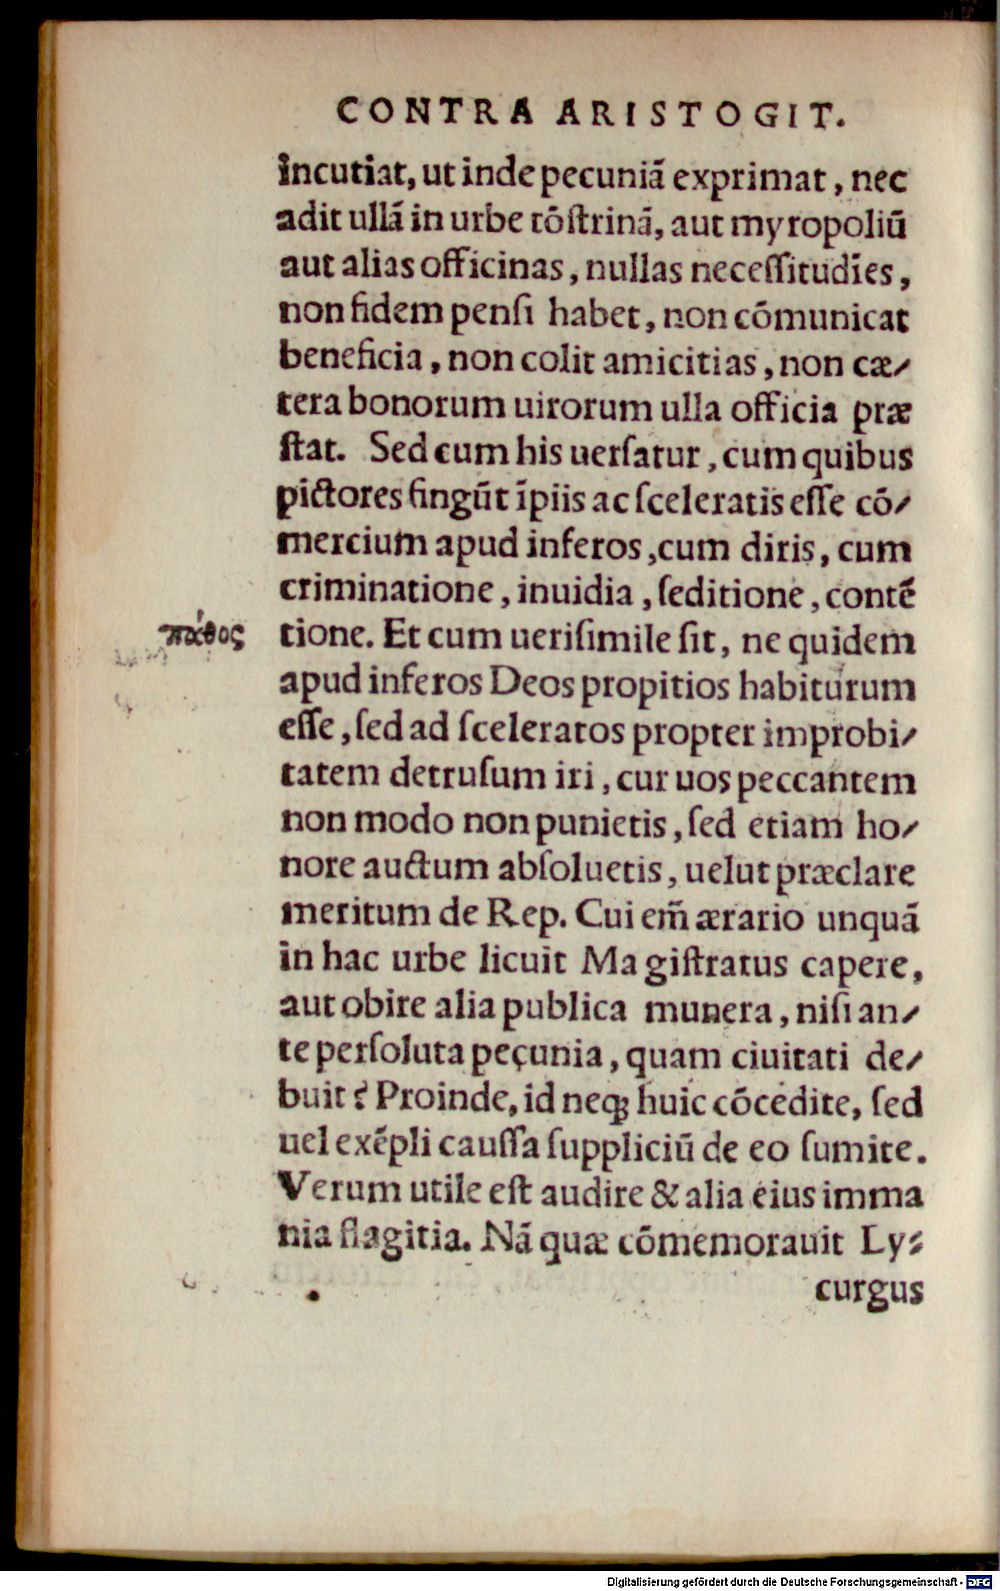 CONTRA ARISTOGIT.
incutiat, ut inde pecuniā exprimat, nec
adit ullā in urbe tōſtrinā, aut myropoliū
aut alias officinas, nullas neceſſitudīes,
non fidem penſi habet, non cōmunicat
beneficia, non colit amicitias, non cæ⸗
tera bonorum uirorum ulla officia præ
ſtat. Sed cum his uerſatur, cum quibus
pictores fingūt īpiis ac ſceleratis eſſe cō⸗
mercium apud inferos, cum diris, cum
criminatione, inuidia, ſeditione, contē
πάθος
tione. Et cum ueriſimile ſit, ne quidem
apud inferos Deos propitios habiturum
eſſe, ſed ad ſceleratos propter improbi⸗
tatem detruſum iri, cur uos peccantem
non modo non punietis, ſed etiam ho⸗
nore auctum abſoluetis, uelut præclare
meritum de Rep. Cui em̄ ærario unquā
in hac urbe licuit Magiſtratus capere,
aut obire alia publica munera, niſi an⸗
te perſoluta peçunia, quam ciuitati de⸗
buit? Proinde, id neqꝫ huic cōcedite, ſed
uel exēpli cauſſa ſuppliciū de eo ſumite.
Verum utile eſt audire & alia eius imma
nia flagitia. Nā quæ cōmemorauit Ly⸗
curgus
Digitalisierung gefördert durch die Deutsche Forschungsgemeinschaft - DFG